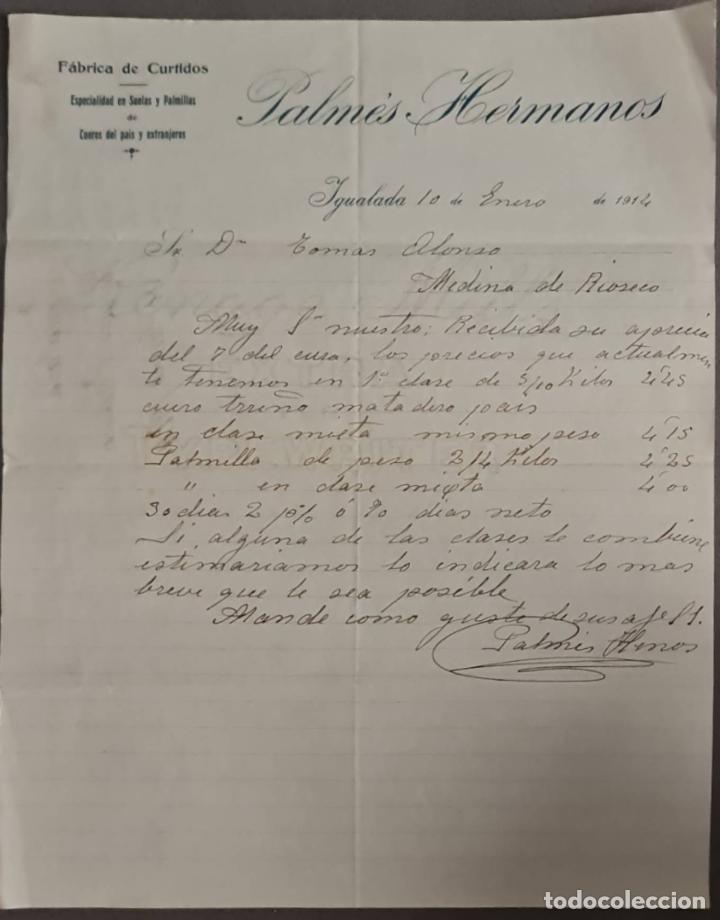 Fábrica de Curtidos
Especialidad en Suelas y Palmillas
de
Cueros del país y extranjeros
Palmés Hermanos
Igualada 10 de Enero de 1914
Sr. Dn Tomas Alonso
Medina de Rioseco
Muy Sr nuestro: Recibida su aprecia
del 7 del cursa, los precios que actualmen
te tenemos en 1ª clase de 5/10 Kilos 4'45
cuero matadero pais
en clase mixta mismo peso 4'15
Palmilla de peso 2/4 Kilos 4'25
" en clase mixta 4'00
30 dias 2 p% ó 90 dias neto
Si alguna de las clases le combiene
estimariamos lo indicara lo mas
breve que le sea posible
Mande como guste de sus
Palmés Hnos
todocoleccion